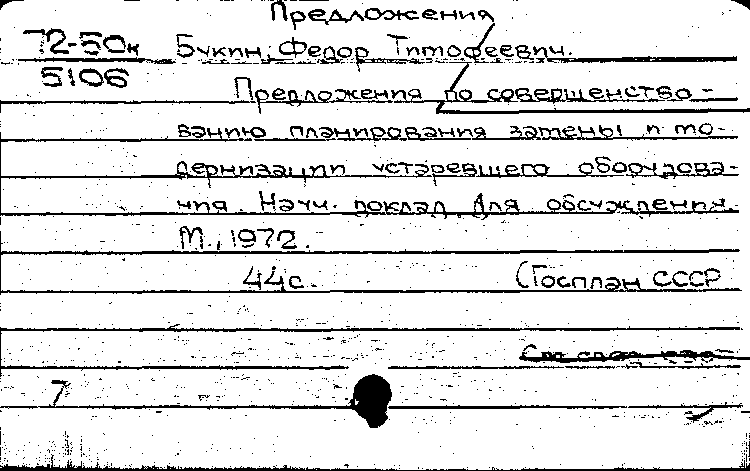 Предложения
72-50к Букин, Федор Тимофеевич.
5106
Предложения по совершенство-
ванию планирования замены и мо-
дернизации устаревшего оборудова-
ния. Научн. доклад для обсуждения.
М., 1972.
44с. (Госплан СССР
См след кар-
7